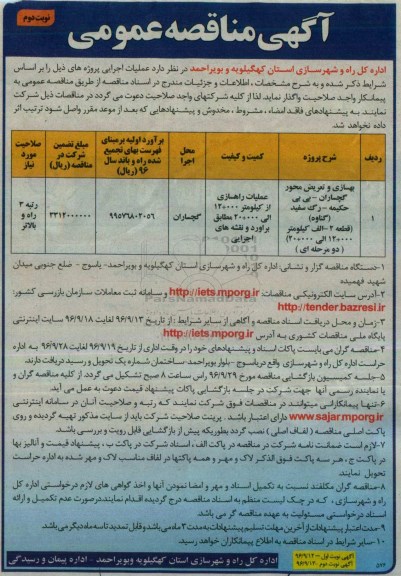 نوبت دوم
آگهی مناقصه عمومی
اداره کل راه و شهرسازی استان کهگیلویه و بویراحمد در نظر دارد عملیات اجرایی پروژه های ذیل را بر اساس
شرایط ذکر شده و به شرح مشخصات ، اطلاعات و جزئیات مندرج در اسناد مناقصه از طریق مناقصه عمومی به
پیمانکار واجد صلاحیت واگذار نماید. لذا از کلیه شرکتهای واجد صلاحیت دعوت می گردد در مناقصات ذیل شرکت
نمایند. به پیشنهادهای فاقد امضاء ، مشروط ، مخدوش و پیشنهادهایی که بعد از موعد مقرر واصل شود ترتیب اثر
داده نخواهد شد.
ردیف
شرح پروژه
کمیت و کیفیت
محل اجرا
برآورد اولیه برمبنای فهرست بهای تجمیع شده راه و باند سال ۹۶ (ریال)
مبلغ تضمین شرکت در مناقصه (ریال)
صلاحیت مورد نیاز
۱
بهسازی و تعریض محور گچساران – بی بی حکیمه – رگ سفید (گناوه)
(قطعه ۲-الف کیلومتر ۱۲+۰۰۰ الی ۲۰+۰۰۰)
( دو مرحله ای )
عملیات راهسازی از کیلومتر ۱۲+۰۰۰ الی ۲۰+۰۰۰ مطابق برآورد و نقشه های اجرایی
گچساران
۹۹۵۷۶۸۰۲۰۵۶
۳۳۱۲۰۰۰۰۰۰
رتبه ۳ راه و بالاتر
۱-دستگاه مناقصه گزار و نشانی: اداره کل راه و شهرسازی استان کهگیلویه و بویراحمد- یاسوج - ضلع جنوبی میدان
شهید فهمیده
۲-آدرس سایت الکترونیکی مناقصات: http://iets.mporg.ir و سامانه ثبت معاملات سازمان بازرسی کشور:
http://tender.bazresi.ir
۳-زمان و محل دریافت اسناد مناقصه و آگاهی از سایر شرایط : از تاریخ ۹۶/۹/۱۳ لغایت ۹۶/۹/۱۸ سایت اینترنتی
پایگاه ملی مناقصات کشوری به آدرس http://iets.mporg.ir
۴-مناقصه گران می بایست پاکات اسناد و پیشنهادهای خود را در وقت اداری از تاریخ ۹۶/۹/۱۹ لغایت ۹۶/۹/۲۸ به اداره
حراست اداره کل راه و شهرسازی واقع در یاسوج -بلوار بویراحمد- ساختمان شماره یک تحویل و رسید دریافت دارند.
۵-جلسه کمیسیون بازگشایی مناقصه مورخ ۹۶/۹/۲۹ راس ساعت ۸ صبح تشکیل می گردد از کلیه مناقصه گران و
یا نماینده رسمی آنها جهت شرکت در جلسه بازگشایی پاکات پیشنهاد قیمت دعوت به عمل می آید.
۶-تنها پیمانکارانی میتوانند در مناقصات فوق شرکت نمایند که رتبه و صلاحیت آنان در سامانه اینترنتی
www.sajar.mporg.ir دارای اعتبار باشد . پرینت صلاحیت شرکت باید از سایت مذکور تهیه گردیده و روی
پاکت اصلی مناقصه ( لفاف اصلی ) نصب گردد بطوریکه پیش از بازگشایی قابل رویت و بررسی باشد.
۷-لازم است ضمانت نامه شرکت در مناقصه در پاکت الف ، اسناد شرکت در پاکت ب ، پیشنهاد قیمت و آنالیز بها
در پاکت ج ، هر سه پاکت فوق الذکر لاک و مهر و همه پاکتها در لفاف مناسب لاک و مهر شده به اداره حراست
تحویل نمایند
۸-مناقصه گران مکلفند نسبت به تکمیل اسناد و مهر و امضا نمودن آنها و اخذ گواهی های لازم درخواستی اداره کل
راه و شهرسازی ، که در چک لیست منظم به اسناد مناقصه درج گردیده اقدام نمایند.درصورت عدم تکمیل و ارائه
اسناد درخواستی مسئولیت به عهده مناقصه گر می باشد.
۹-مدت اعتبار پیشنهادات از آخرین مهلت تسلیم پیشنهادات به مدت ۳ ماه می باشد و قابل تمدید تا سه ماه دیگر می باشد.
۱۰-سایر شرایط در اسناد مناقصه به اطلاع پیمانکاران خواهد رسید.
آگهی نوبت اول: ۹۶/۹/۱۲
آگهی نوبت دوم: ۹۶/۹/۱۳
اداره کل راه و شهرسازی استان کهگیلویه وبویراحمد - اداره پیمان و رسیدگی
۵۷۶